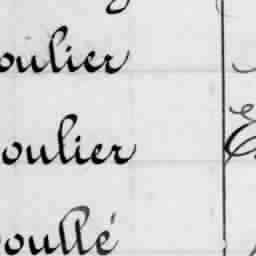 oulier
oulier
oullé